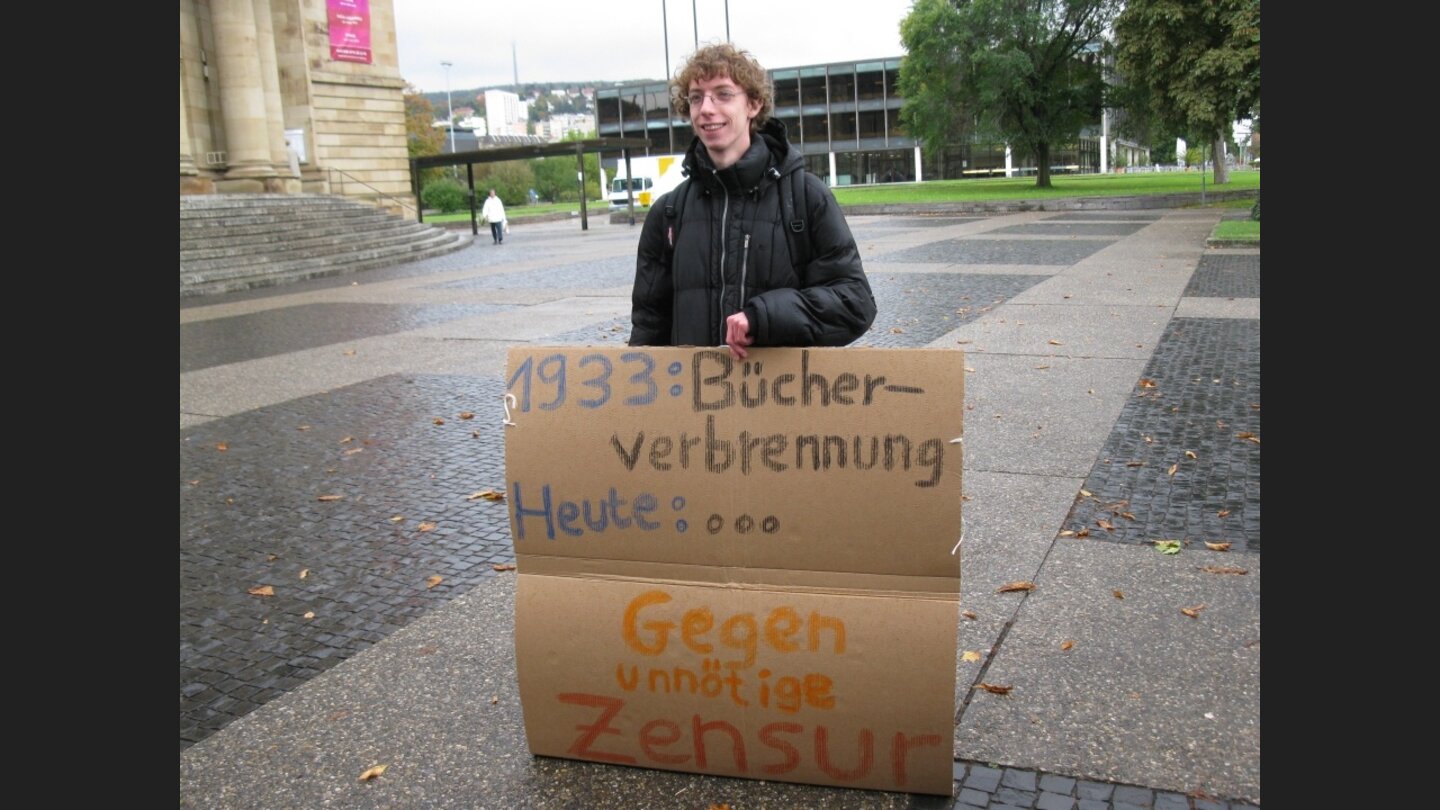 1933: Bücher-
verbrennung
Heute: ...
Gegen
unnötige
Zensur